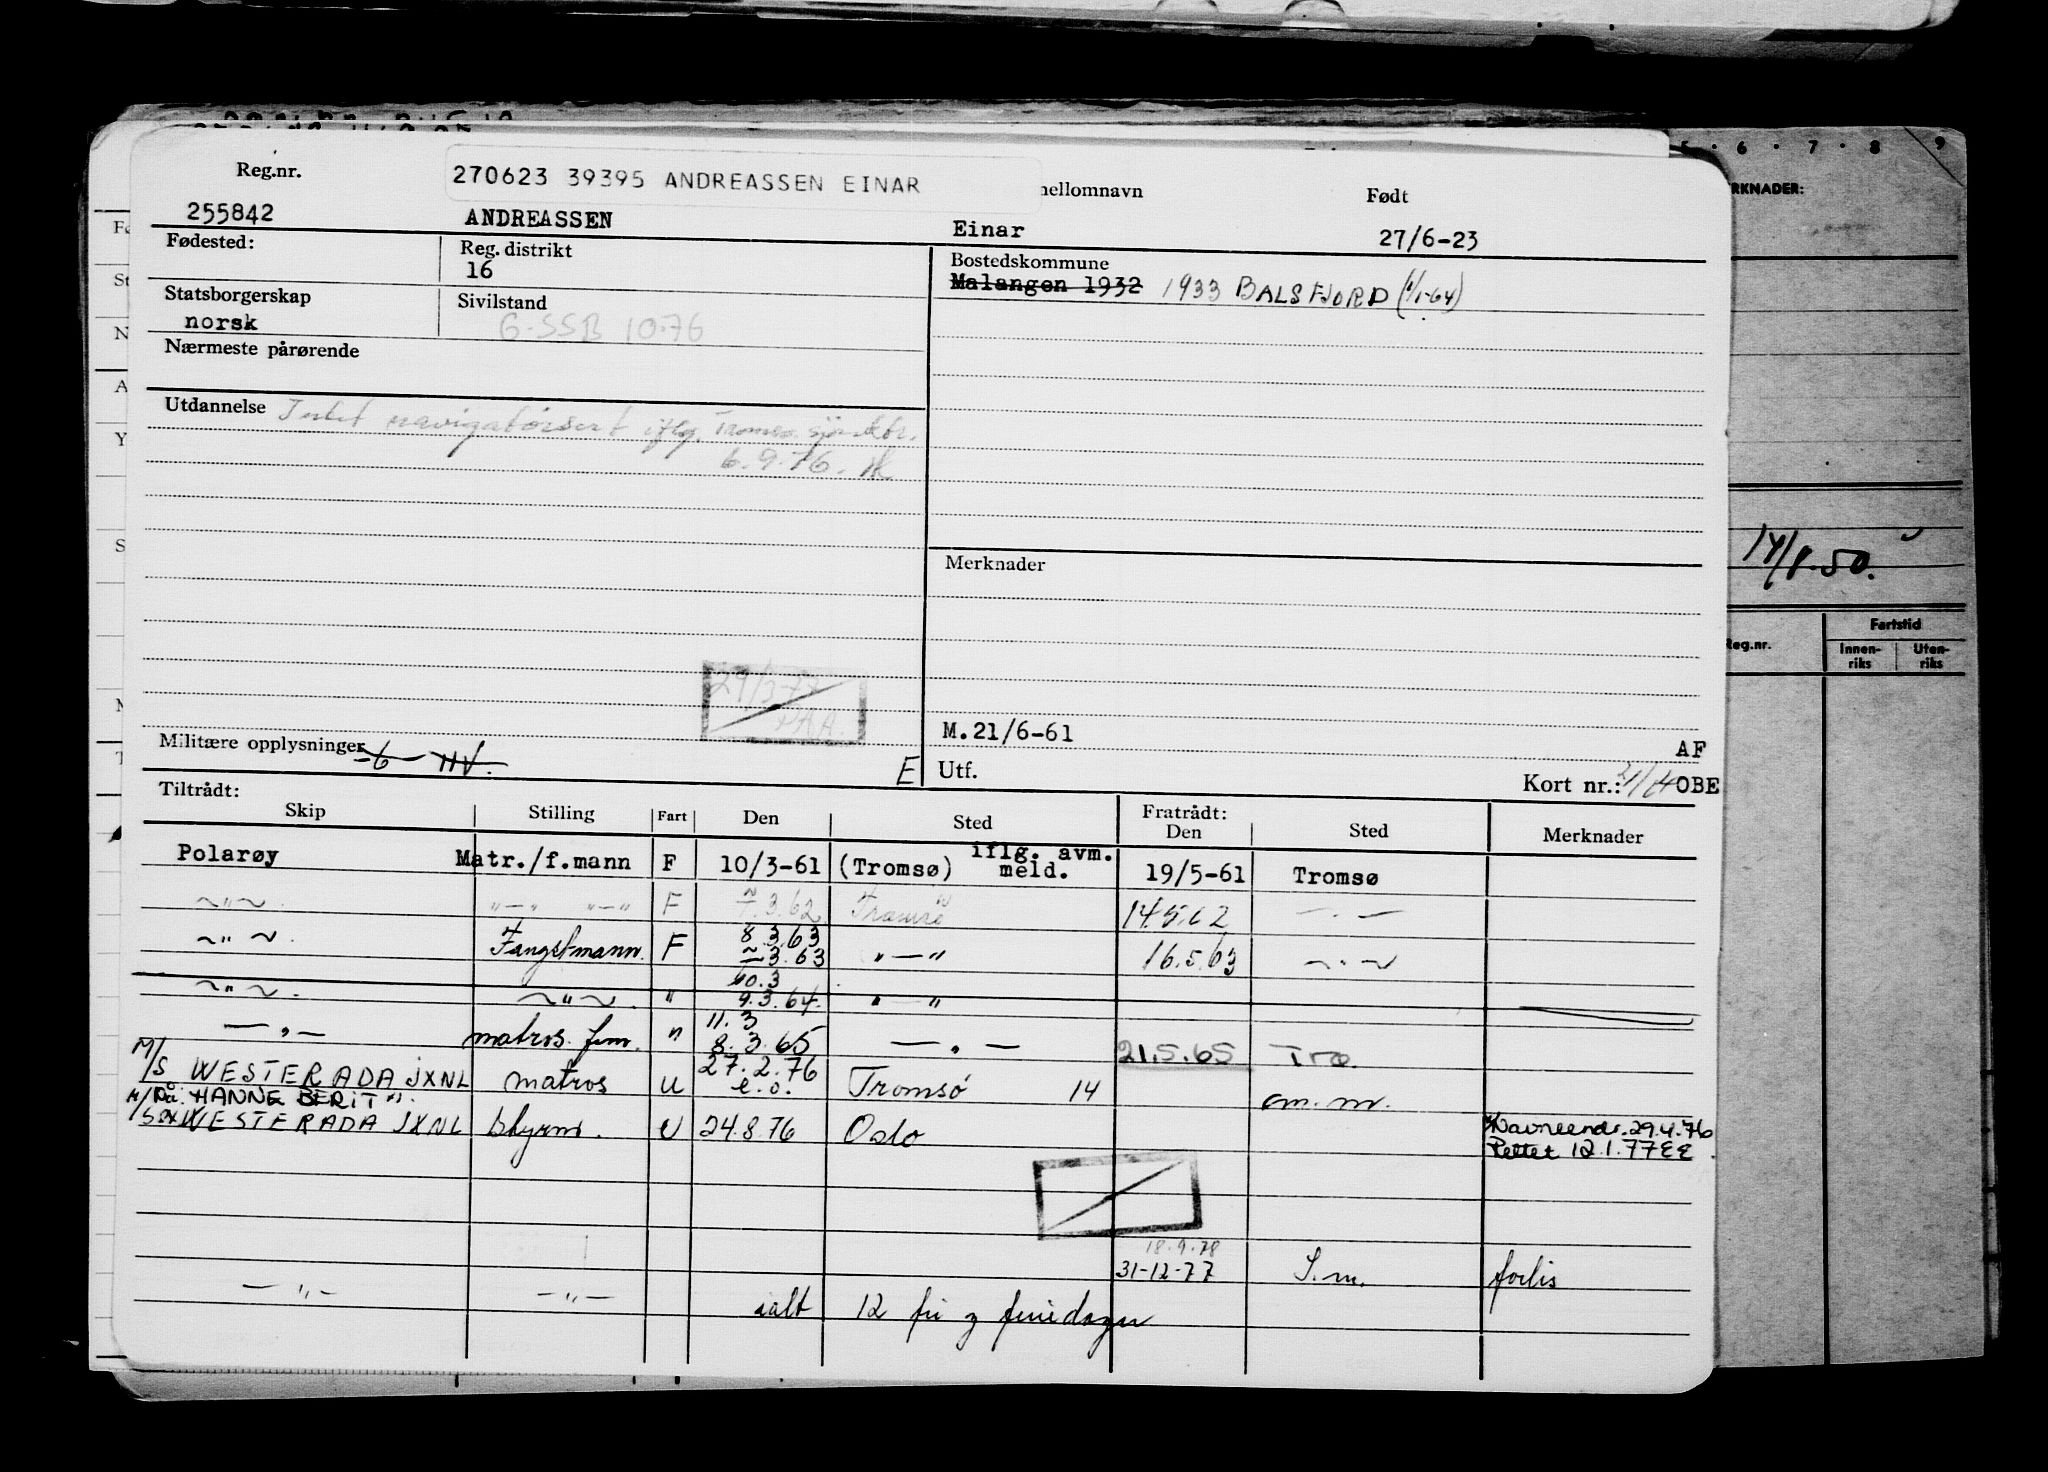 5 · 6 · 7 · 8 9
RKNADER:
Reg.nr. 270623 39395 ANDREASSEN EINAR nellomnavn Født
255842 ANDREASSEN Einar 27/6-23
Fødested: Reg. distrikt Bostedskommune
16 Malangen 1932 1933 BALSFJORD (1/1-64)
Statsborgerskap Sivilstand
norsk G-SSB 10-76
Nærmeste pårørende
Utdannelse Intet navigatørsert iflg. Tromsø sjømktr.
6.9.76.
Merknader
14/8-50.
Reg.nr. Fartstid
Innen- Uten-
riks riks
29/3-77
M.21/6-61
AF
Militære opplysninger
E Utf. Kort nr.: OBE
Tiltrådt: Fratrådt:
Skip Stilling Fart Den Sted Den Sted Merknader
Polarøy Matr./f.mann F 10/3-61 (Tromsø) iflg. avm. meld. 19/5-61 Tromsø
~"~ "—" "—" F 7.3.62 Tromsø 14.5.62 —"—
~"~ Fangstmann. F 8.3.63 "—" 16.5.63 ~"~
3.63
10.3
~"~ ~"~ " 9.3.64. "—"
11.3
—"— matros fm. " 8.3.65 —"— 21.5.65 Tro.
M/S WESTERADA JXNL matros U 27.2.76 e.o. Tromsø 14 om. m.
HANNE BERIT
M/S WESTERADA JXNL styrm. U 24.8.76 Oslo Navneendr. 29.4.76
Rettet 12.1.77 EE
18.9.78
31-12-77 S.m. forlis
—"— —"— ialt 12 fri og feriedager